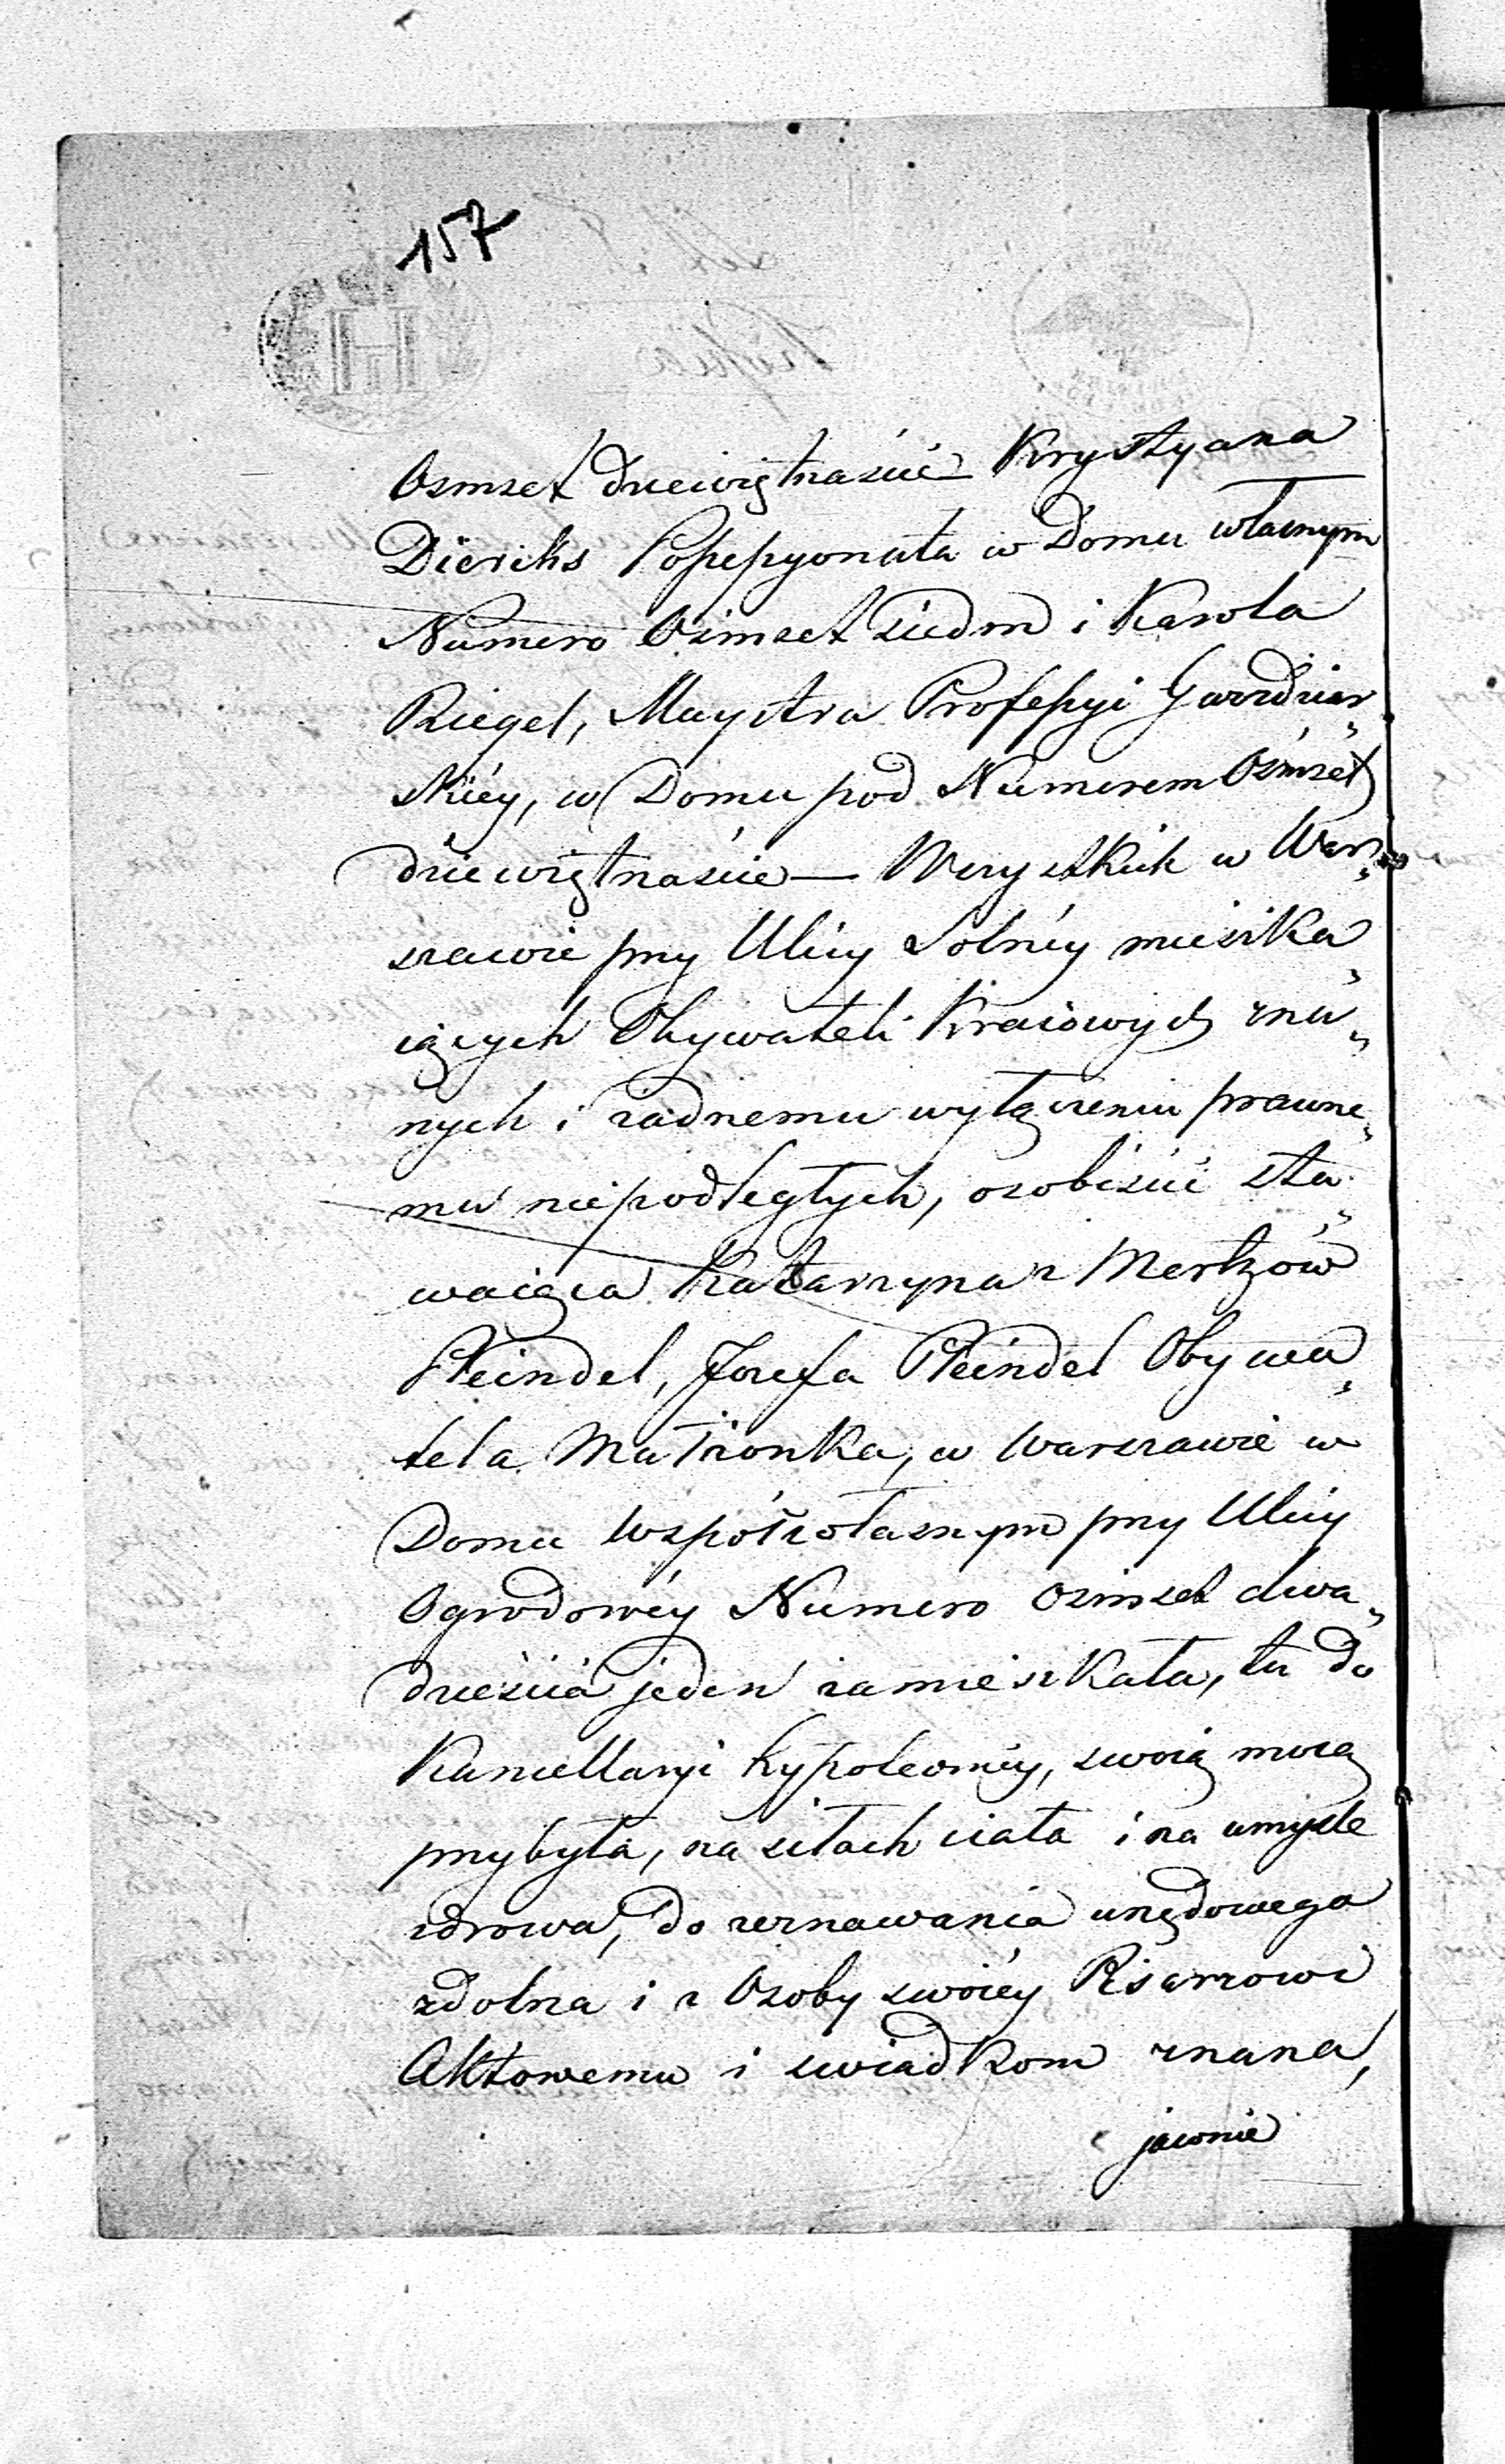 157
Osmset dziewiętnaście Krystyana
Dieriks Possessyonata w Domu własnym
Numero Osmset siedm i Karola
Riegel, Maystra Professyi Gwoździar„
skiéy, w Domu pod Numerem Osmset
dziewiętnaście — Wszystkich w War„
szawie przy Ulicy Solnéy mieszka„
iących Obywateli Kraiowych zna„
nych i żadnemu wyłączeniu prawne„
mu niepodległych, osobiście sta„
waiąca Katarzyna z Mertzów
Steindel, Jozefa Steindel Obywa„
tela Małżonka, w Warszawie w
Domu współwłasnym przy Ulicy
Ogrodowéy Numero Osmset dwa„
dzieścia jeden zamieszkała, tu do
Kancellaryi hypoteczney, swoią mocą
przybyła, na siłach ciała i na umyśle
zdrowa, do zeznawania urzędowego
zdolna i z Osoby swoiéy Pisarzowi
Aktowemu i swiadkom znana,
jawnie